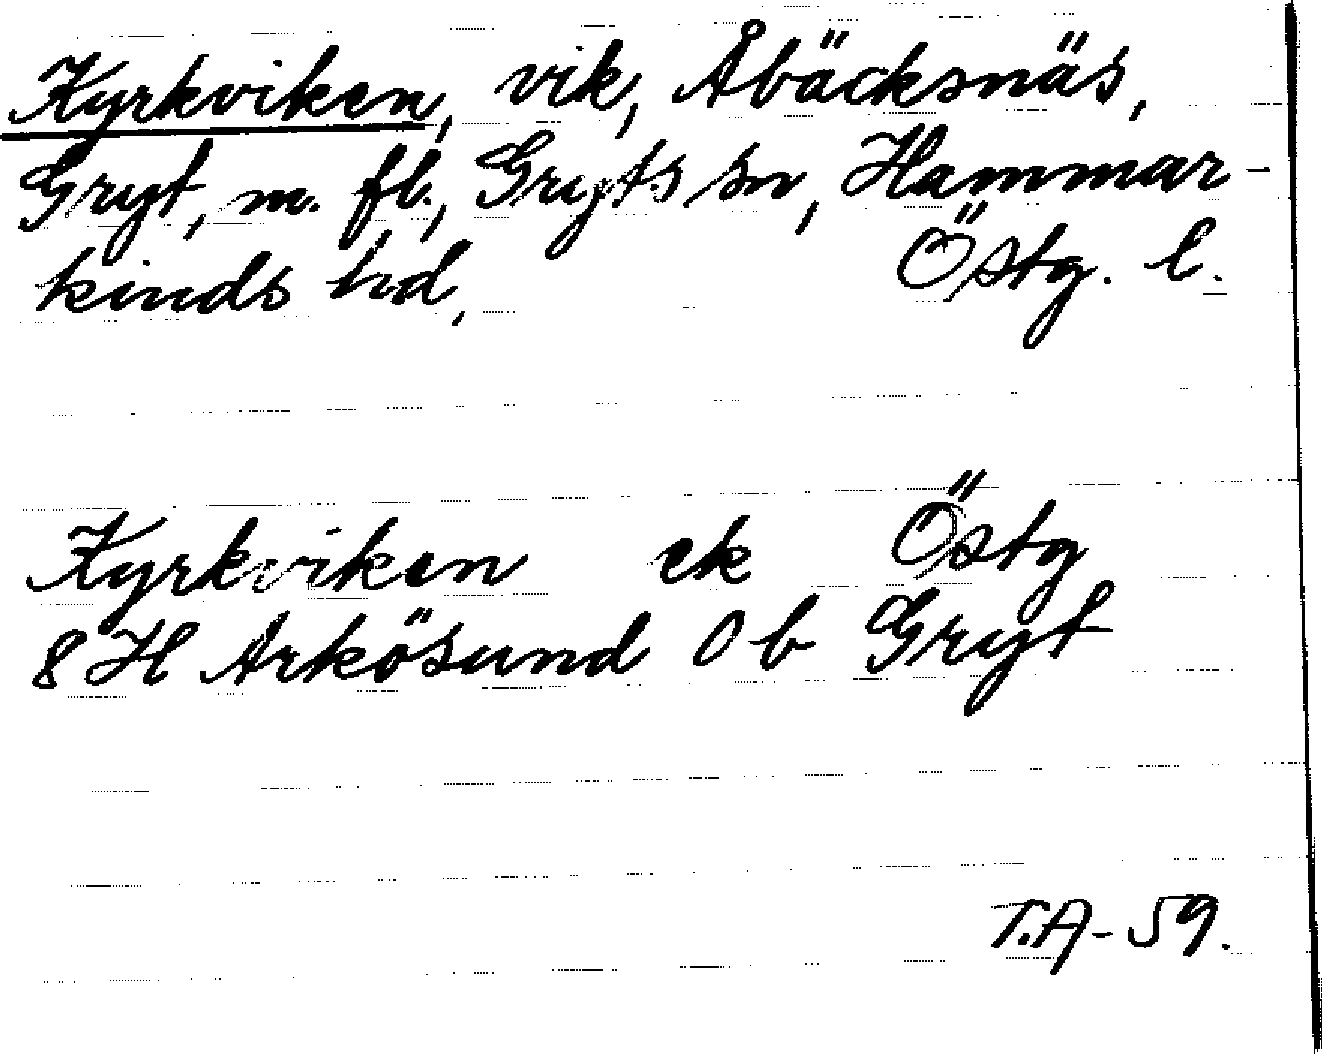 Kyrkviken, vik, Åbäcksnäs,
Gryt, m. fl., Gryts sn, Hammar-
kinds hd, Östg. l.
Kyrkviken ek Östg
8H Arkösund 0b Gryt
T.A-59.